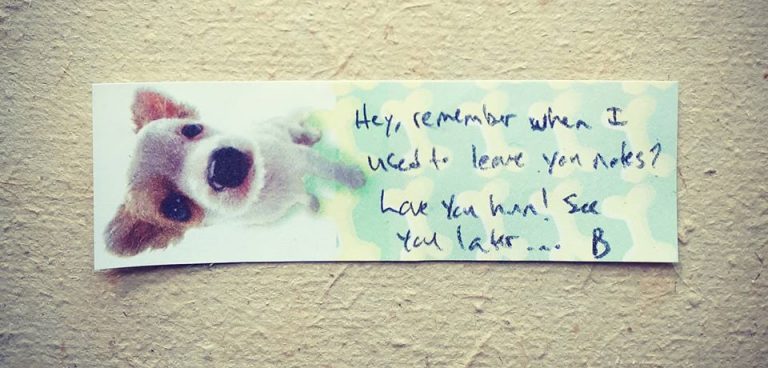 Hey, remember when I
used to leave you notes?
Love you hun! See
you later... B